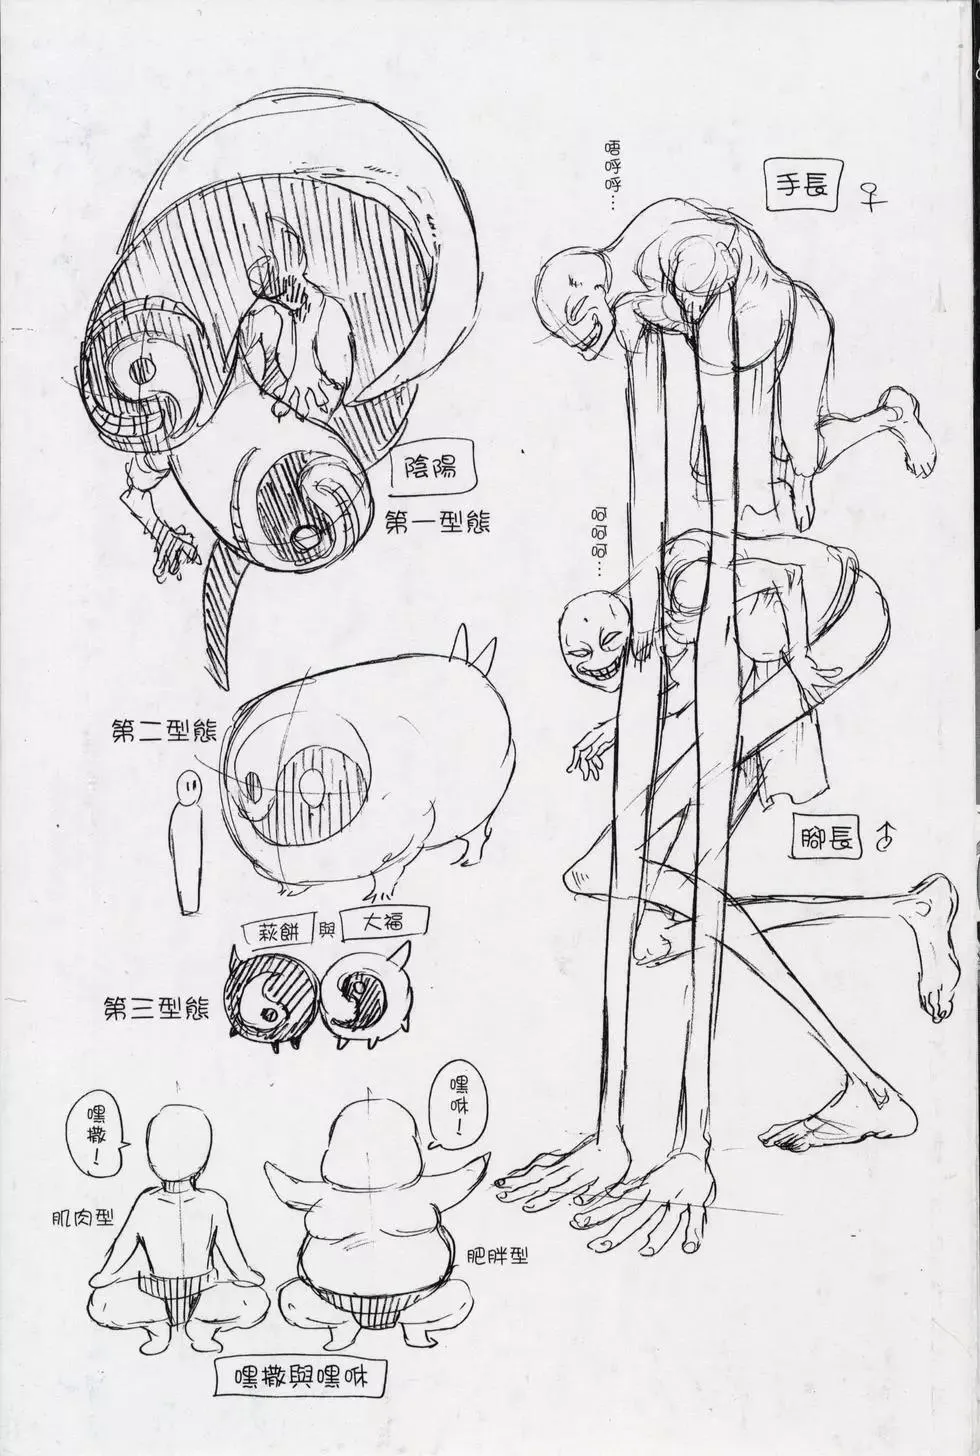 唔呼呼…
手長
♀
陰陽
第一型態
呵呵呵…
第二型態
腳長
♂
萩餅與大福
第三型態
嘿撒！
嘿咻！
肌肉型
肥胖型
嘿撒與嘿咻